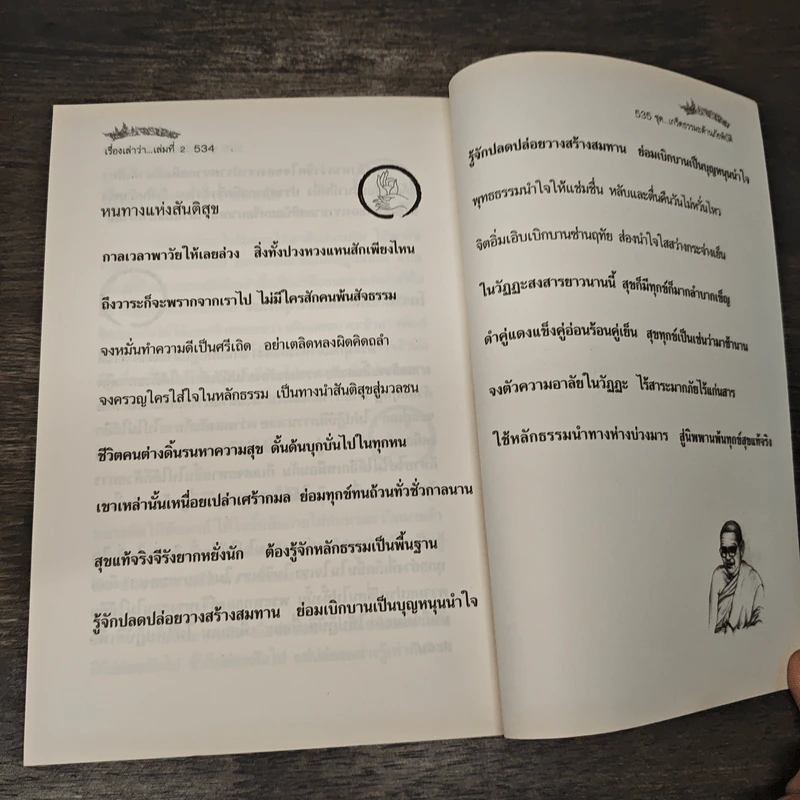 เรื่องเล่าว่า...เล่มที่ 2 534
หนทางแห่งสันติสุข
กาลเวลาพาวัยให้เลยล่วง สิ่งทั้งปวงหวงแหนสักเพียงไหน
ถึงวาระก็จะพรากจากเราไป ไม่มีใครสักคนพ้นสัจธรรม
จงหมั่นทำความดีเป็นศรีเถิด อย่าเตลิดหลงผิดคิดถลำ
จงครวญใคร่ใส่ใจในหลักธรรม เป็นทางนำสันติสุขสู่มวลชน
ชีวิตคนต่างดิ้นรนหาความสุข ดั้นด้นบุกบั่นไปในทุกหน
เขาเหล่านั้นเหนื่อยเปล่าเศร้ากมล ย่อมทุกข์ทนถ้วนทั่วชั่วกาลนาน
สุขแท้จริงจีรังยากหยั่งนัก ต้องรู้จักหลักธรรมเป็นพื้นฐาน
รู้จักปลดปล่อยวางสร้างสมทาน ย่อมเบิกบานเป็นบุญหนุนนำใจ
535 ชุด...เกร็ดธรรมะต้านภัยพิบัติ
รู้จักปลดปล่อยวางสร้างสมทาน ย่อมเบิกบานเป็นบุญหนุนนำใจ
พุทธธรรมนำใจให้แช่มชื่น หลับและตื่นคืนวันไม่หวั่นไหว
จิตอิ่มเอิบเบิกบานซ่านฤทัย ส่องนำใจใสสว่างกระจ่างเย็น
ในวัฏฏะสงสารยาวนานนี้ สุขก็มีทุกข์ก็มากลำบากเข็ญ
ดำคู่แดงแข็งคู่อ่อนร้อนคู่เย็น สุขทุกข์เป็นเช่นว่ามาช้านาน
จงตัวความอาลัยในวัฏฏะ ไร้สาระมากภัยไร้แก่นสาร
ใช้หลักธรรมนำทางห่างบ่วงมาร สู่นิพพานพ้นทุกข์สุขแท้จริง